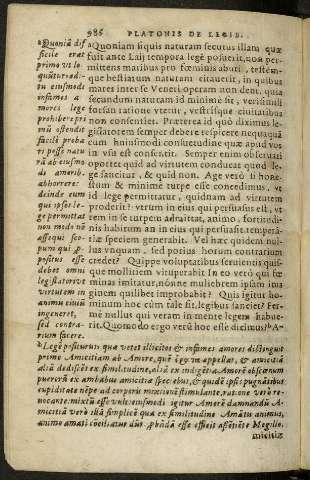 986 PLATONIS DE LEGIB.
Quoniā dif
ficile erat
primo vt lo
quūtur odi-
tu eiusmodi
infames a
mores lege
prohibere pri
mū ostendit
facilē proba
ri posse natu
rā ab eiusmo
di amorib.
abhorrere:
deinde eum
qui ipsos le-
ge permittat
non modo nō
assequi sco-
pum qui p
positus esse
debet omni
legislatori vt
virtutem in
animū ciuiū
ingeneret,
sed contra-
rium facere.
Quoniam siquis naturam secutus illam quæ
fuit ante Laij tempora legē posuerit, non per-
mittens maribus pro fœminis abuti, testem-
que bestiarum naturam citauerit, in quibus
mares inter se Veneri operam non dent, quia
secundum naturam id minime sit, verisimili
forsan ratione vtatur, vestrisque ciuitatibus
non consentiet. Præterea id quod dicimus le-
gislatorem semper debere respicere nequaquā
cum huiusmodi consuetudine quæ apud vos
in vsu est consentit. Semper enim obseruari
oportet quid ad virtutem conducat quod le-
ge sancitur, & quid non. Age verò si hone-
stum & minimè turpe esse concedimus, vt
id lege permittatur, quidnam ad virtutem
proderit? vtrum in eius qui persuasus est, vt
rem in se turpem admittat, animo, fortitudi-
nis habitum an in eius qui persuasit temperā-
tiæ speciem generabit. Vel hæc quidem nul-
lus vnquam, sed potius horum contrarium
credet? Quippe voluptatibus seruientis quis-
que mollitiem vituperabit In eo verò qui fœ
minas imitatur, nonne muliebrem ipsam ima
ginem quilibet improbabit? Quis igitur ho-
minum hoc cùm tale sit, legibus sanciet? Fer-
mè nullus qui veram in mente legem habue-
rit. Quomodo ergo verū hoc esse dicimus? A-
Lege posituru quæ vetet illicitos & infames amores distinguit
primo Amicitiam ab Amore, quē ἔρωτα appellat, & amicitiā
aliā dedisset ex similitudine, aliā ex indigētia Amorē obscœnum
puerorū ex ambabus amicitiæ speciebus, & quidē ipsis pugnātibus
cupiditate nēpe ad corporis mixtionē stimulante, ratione verò re-
uocante mixtū esse vult: eiusmodi igitur Amorē damnandū. A-
micitiā verò illā simplicē quæ ex similitudine Amātū animus,
animo amati cōciliatur dūt probādā esse efficit assētiēte Megillo.
micitiæ